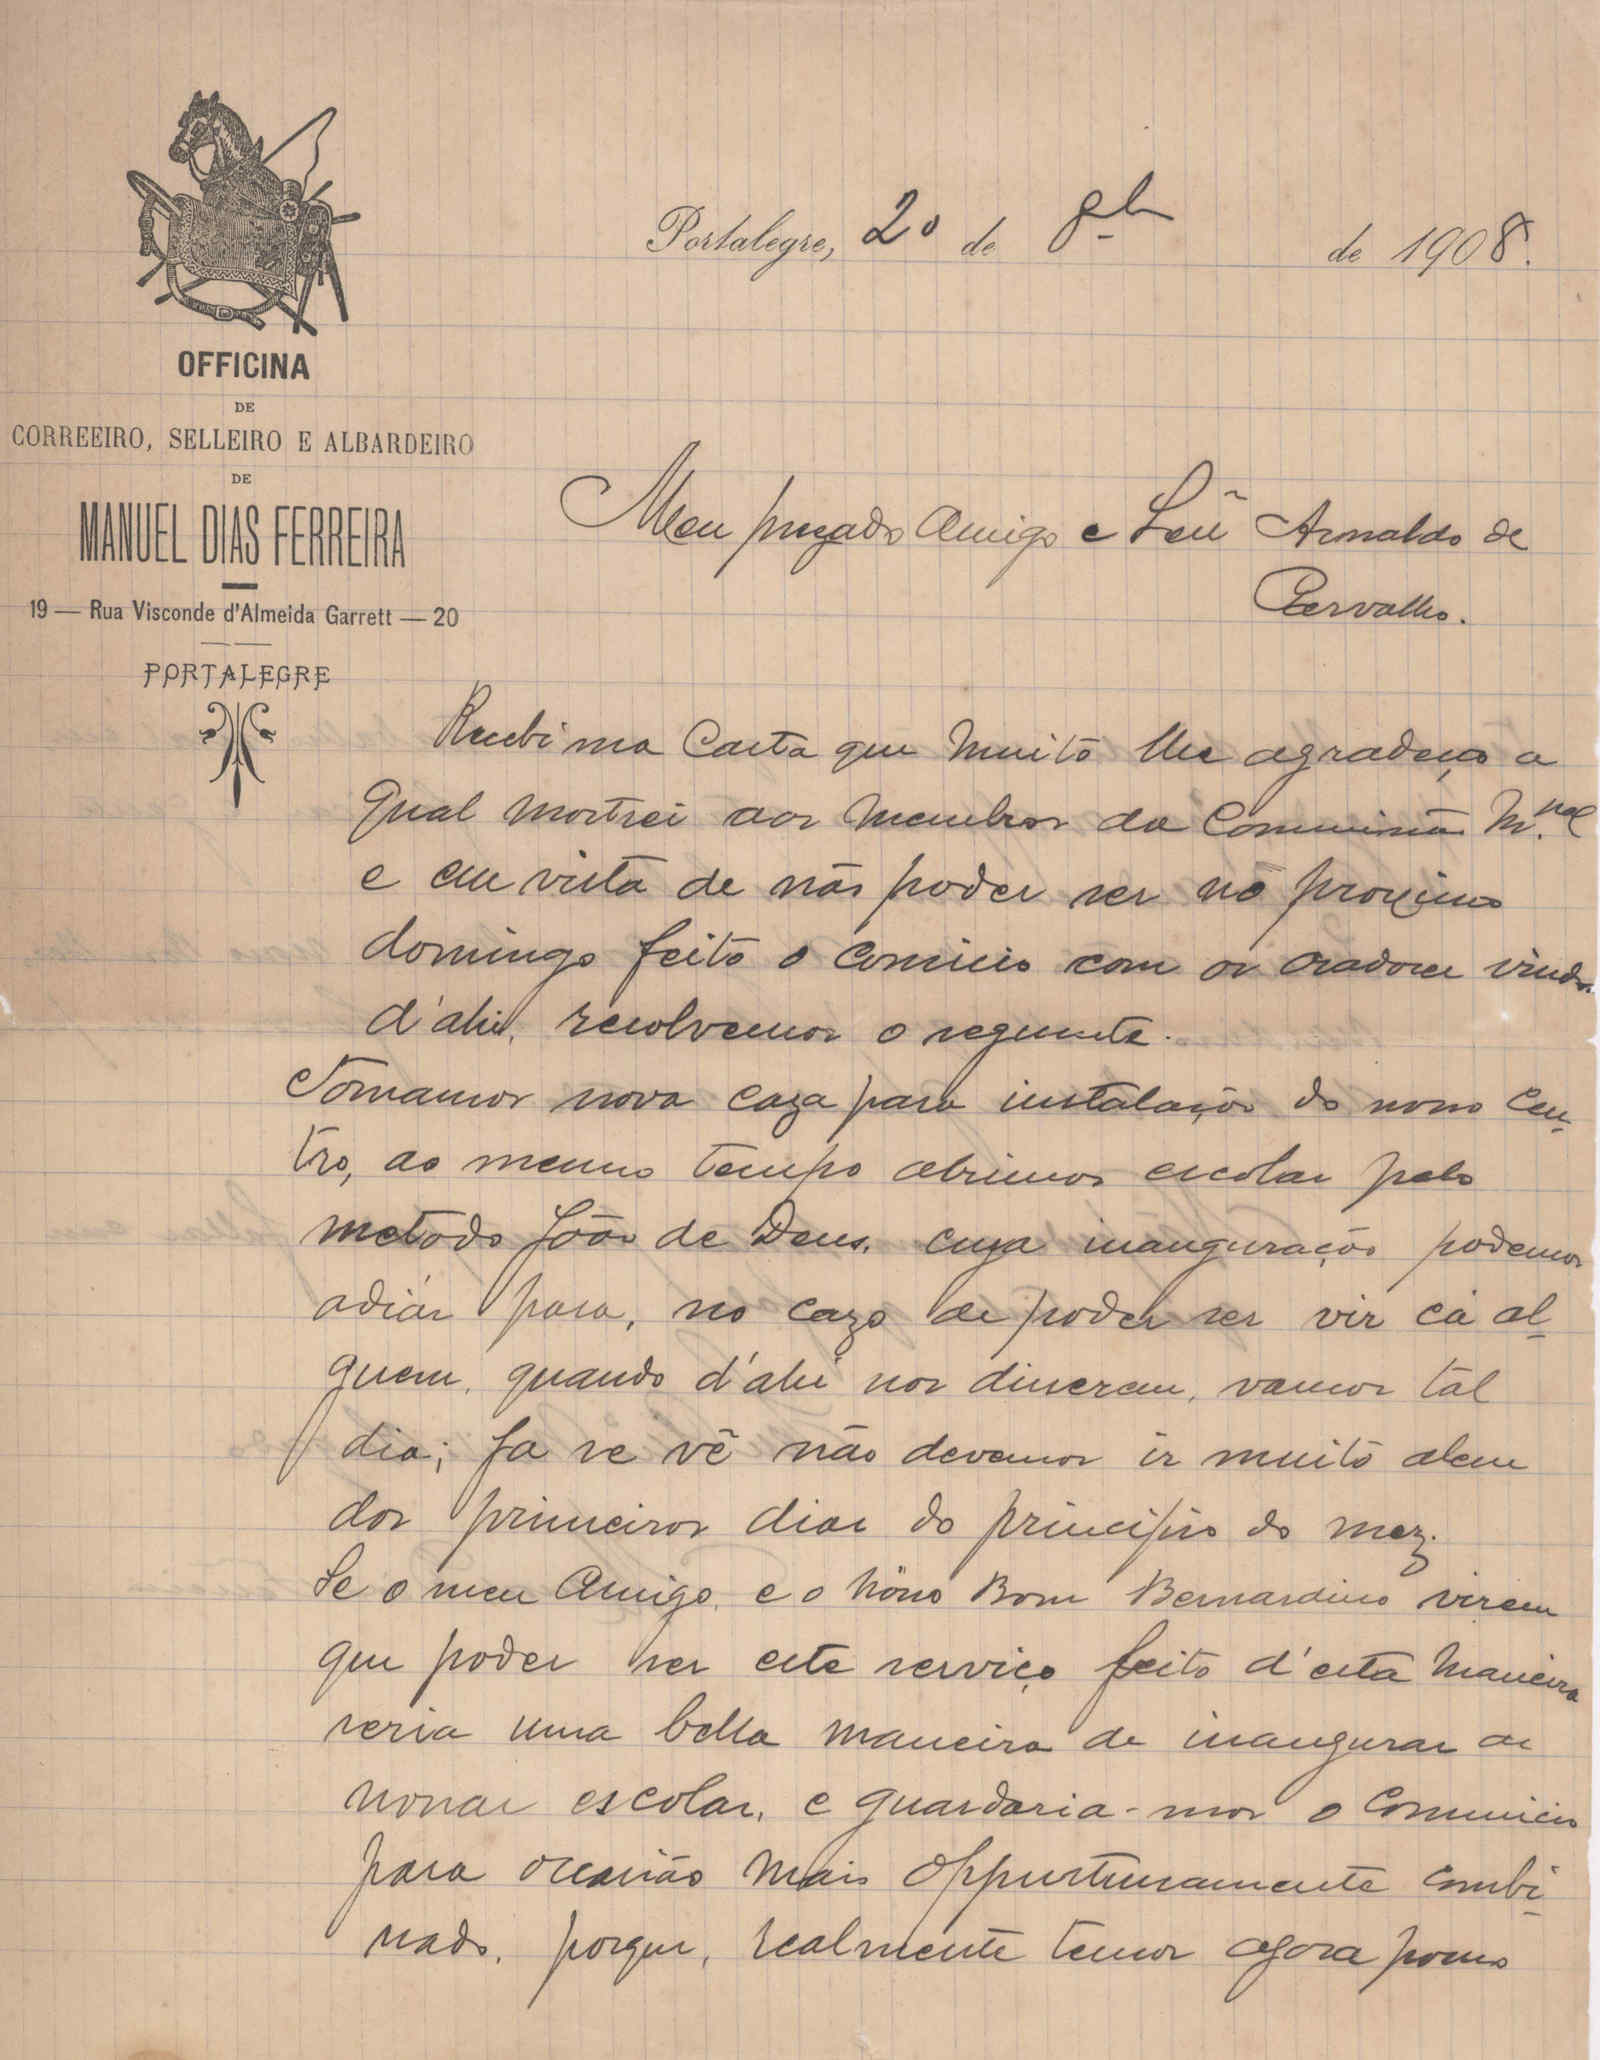 Portalegre, 20 de 8br de 1908.
OFFICINA
DE
CORREEIRO, SELLEIRO E ALBARDEIRO
DE
MANUEL DIAS FERREIRA
19 — Rua Visconde d'Almeida Garrett — 20
PORTALEGRE
Meu prezado Amigo e Arnaldo de
Carvalho.
Recebi sua Carta que muito lhe agradeço a
qual mostrei aos membros da Commissão M.pal
e em vista de não poder ser no proximo
domingo feito o comicio com os oradores vindos
d'ahi, resolvemos o seguinte.
Tomamos nova caza para instalação do nosso Cen-
tro, ao mesmo tempo abrimos escolas pelo
metodo João de Deus, cuja inauguração podemos
adiar para, no cazo de poder ser vir cá al-
guem, quando d'ahi nos disseram, vamos tal
dia; Ja se vê não devemos ir muito alem
dos primeiros dias do principio do mez.
Se o meu Amigo, e o nosso Bom Bernardino virem
que poder ser este serviço feito d'esta maneira
seria uma bella maneira de inaugurar as
nossas escolas, e guardaria-mos o Commicio
para occasião mais oppurtunamente combi-
nado, porque, realmente temos agora pouco